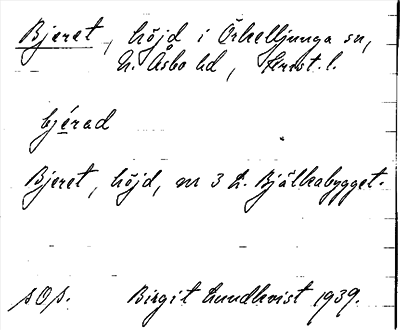 Bjeret, höjd i Örkelljunga sn,
N. Åsbo hd, Krist. l.
bjérad
Bjeret, höjd, m 3 L. Bjälkabygget.
SOP. Birgit Lundkvist 1939.